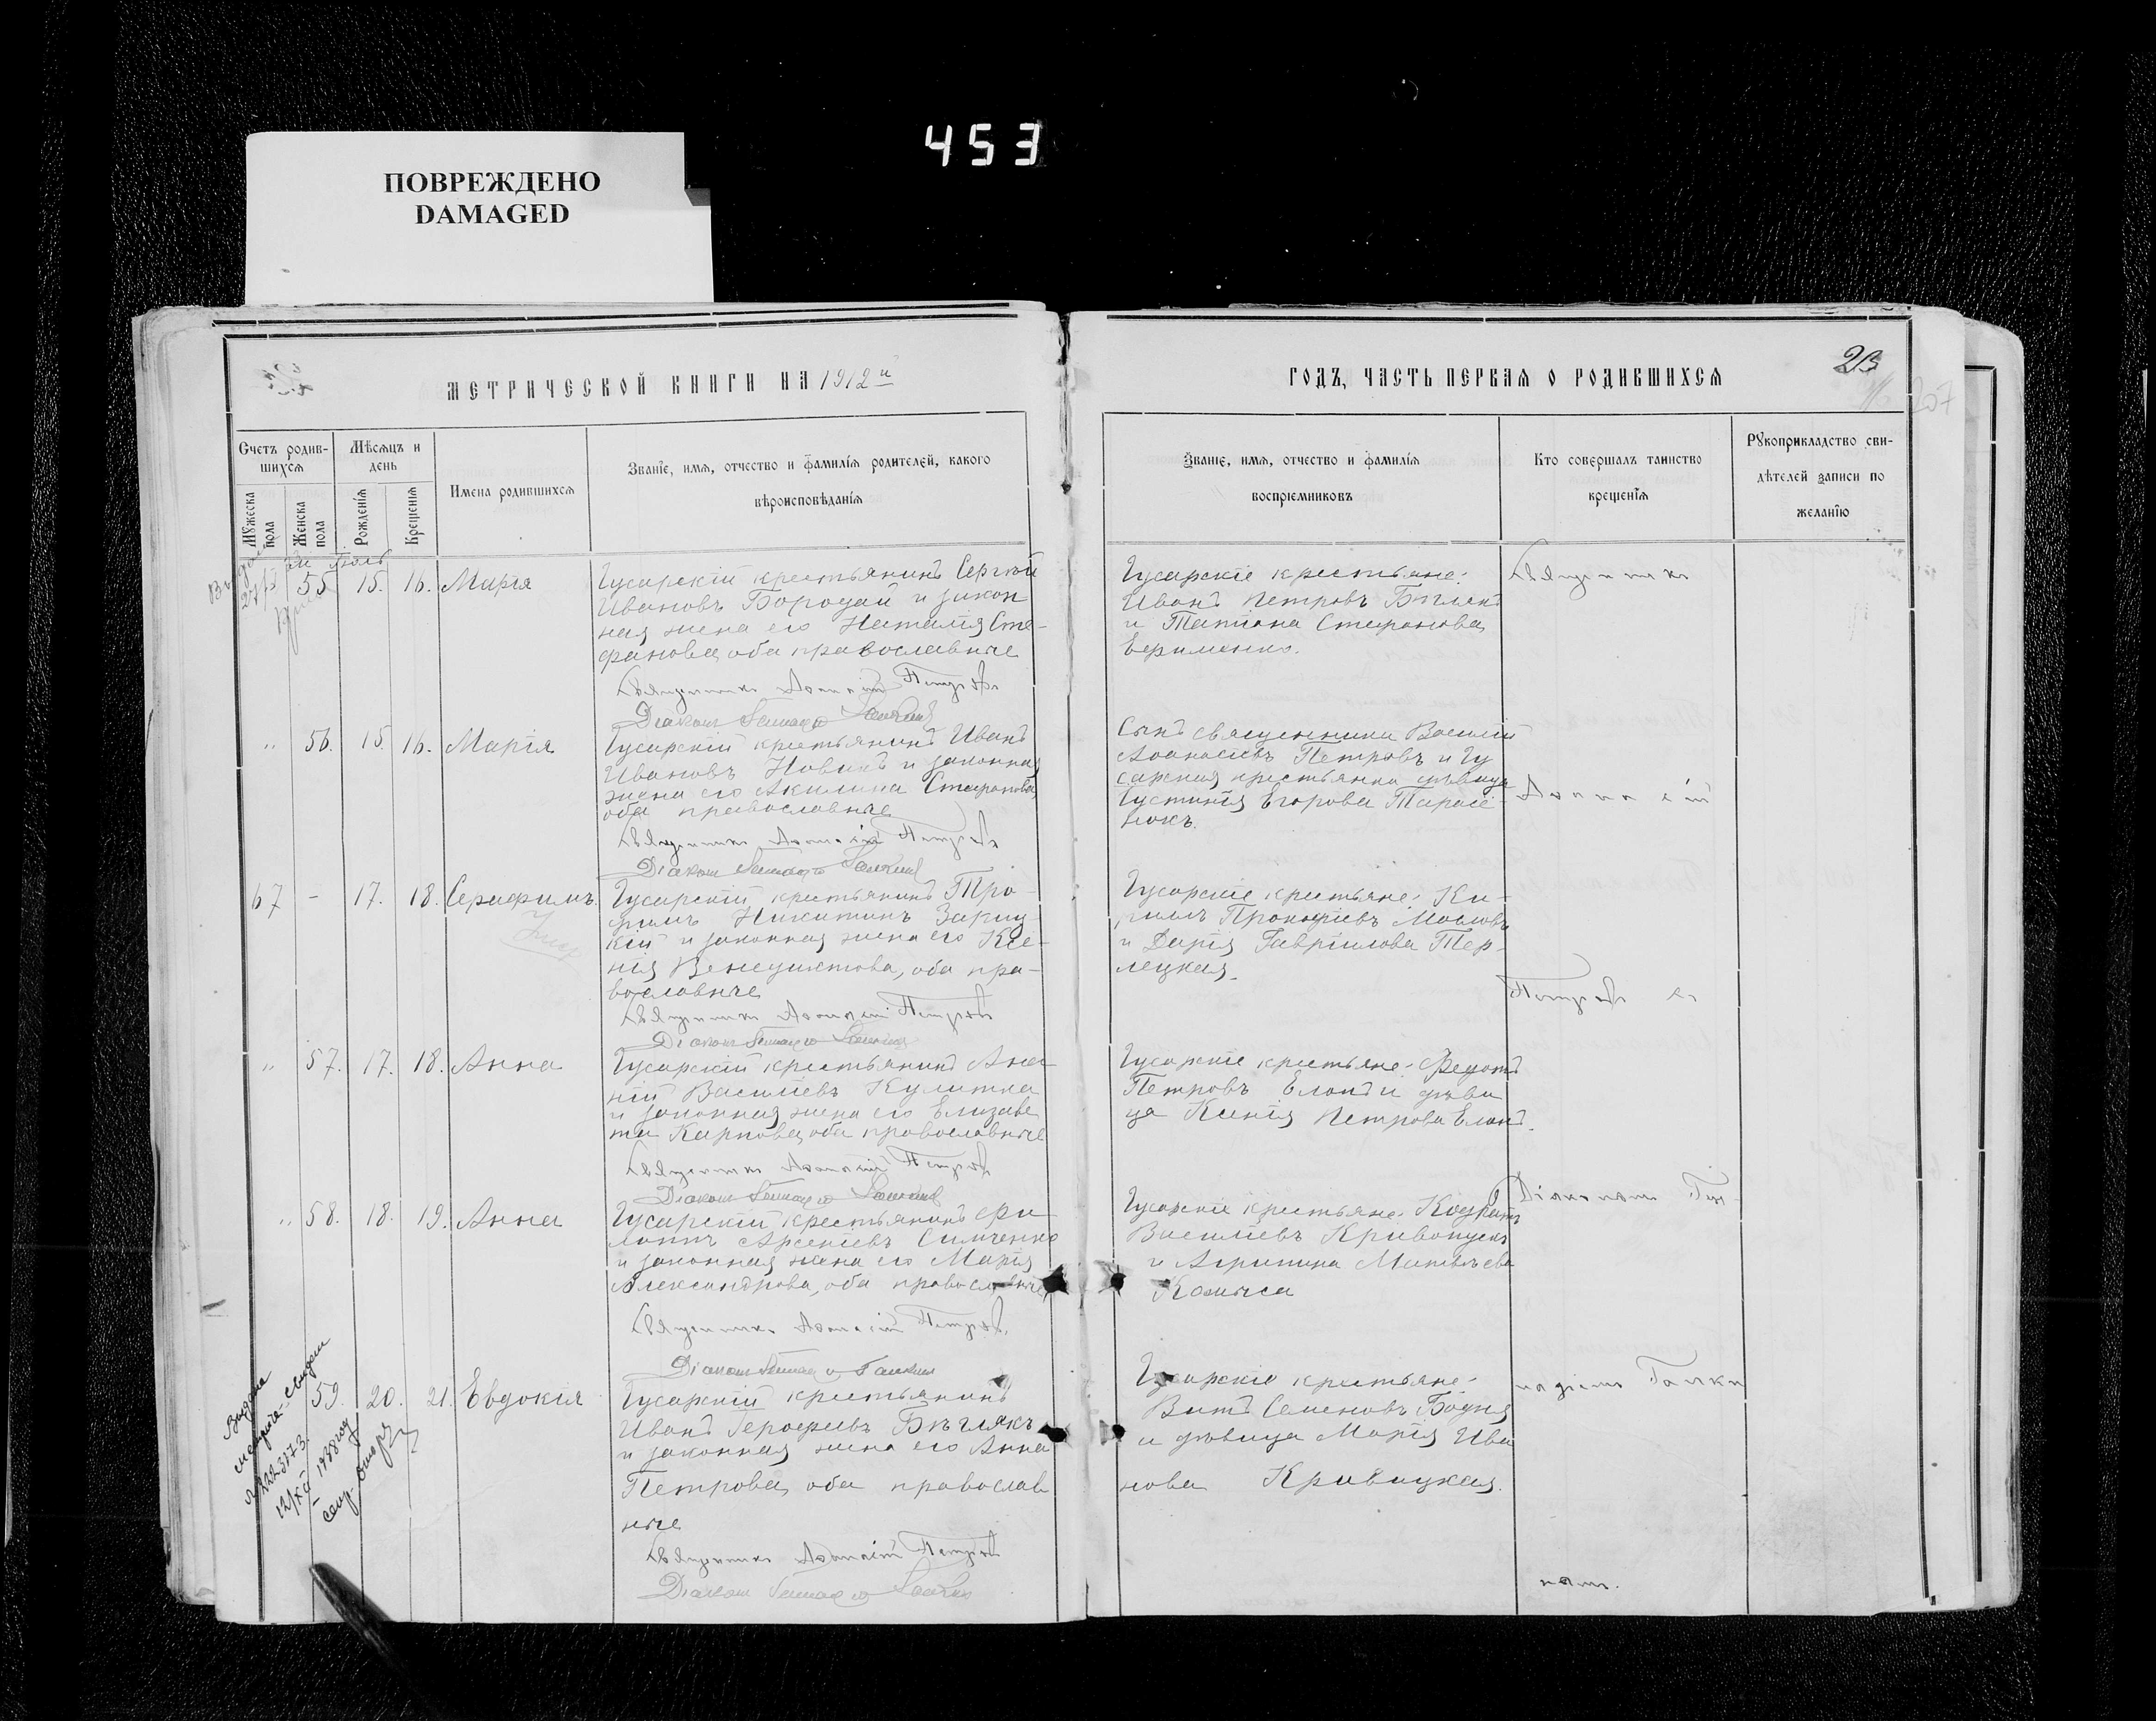 453
ПОВРЕЖДЕНО
DAMAGED
МЕТРИЧЕСКОЙ КНИГИ НА 1912й
ГОДЪ, ЧАСТЬ ПЕРВАЯ О РОДИВШИХСЯ
23
207
Счетъ родив-
шихся
Мѣсяцъ и
день
Имена родившихся
Званіе, имя, отчество и фамилія родителей, какого
вѣроисповѣданія
Мужеска
пола
Женска
пола
Рожденія
Крещенія
Званіе, имя, отчество и фамилія
воспріемниковъ
Кто совершалъ таинство
крещенія
Рукоприкладство сви-
дѣтелей записи по
желанію
55 15. 16. Марія
Гусарскій крестьянинъ Сергѣй
Ивановъ Бородай и закон
ная жена его Наталія Сте-
фанова, оба православные
Священникъ Аѳанасій Петровъ
Діаконъ Геннадій Галкинъ
Гусарскіе крестьяне:
Иванъ Петровъ Бѣглякъ
и Татіана Стефанова
Ефименко.
Священникъ
" 56. 15. 16. Марія
Гусарскій крестьянинъ Иванъ
Ивановъ Новакъ и законная
жена его Акилина Стефанова
оба православные
Священникъ Аѳанасій Петровъ
Діаконъ Геннадій Галкинъ
Сынъ священника Василій
Аѳанасіевъ Петровъ и Гу
сарская крестьянка дѣвица
Іустинія Егорова Тарасе-
нокъ.
Аѳанасій
67 - 17. 18. Серафимъ.
Гусарскій крестьянинъ Тро-
фимъ Никитинъ Зариц
кій и законная жена его Ксе-
нія Венедиктова, оба пра-
вославные
Священникъ Аѳанасій Петровъ
Діаконъ Геннадій Галкинъ
Гусарскіе крестьяне: Ки-
риллъ Прокофіевъ Масловъ
и Дарія Гавріилова Тер-
лецкая.
Петровъ съ
" 57. 17. 18. Анна
Гусарскій крестьянинъ Ана
ній Василіевъ Кулитка
и законная жена его Елизаве
та Карпова, оба православные
Священникъ Аѳанасій Петровъ
Діаконъ Геннадій Галкинъ
Гусарскіе крестьяне: Федотъ
Петровъ Еланъ и дѣви
ца Ксенія Петрова Еланъ.
" 58. 18. 19. Анна
Гусарскій крестьянинъ Фи
липпъ Арсеніевъ Симченко
и законная жена его Марія
Александрова, оба православные
Священникъ Аѳанасій Петровъ.
Діаконъ Геннадій Галкинъ
Діакономъ Ген-
Гусарскіе крестьяне: Кодратъ
Василіевъ Кривопускъ
и Агрипина Матвѣева
Камыса
59. 20. 21. Евдокія
Гусарскій крестьянинъ
Иванъ Герофеевъ Бѣглякъ
и законная жена его Анна
Петрова, оба православ
ные
Священникъ Аѳанасій Петровъ
Діаконъ Геннадій Галкинъ
Гусарскіе крестьяне:
Витъ Семеновъ Бодня
и дѣвица Марія Ива
нова Кривицкая.
надіемъ Галки
нымъ.
Выдано